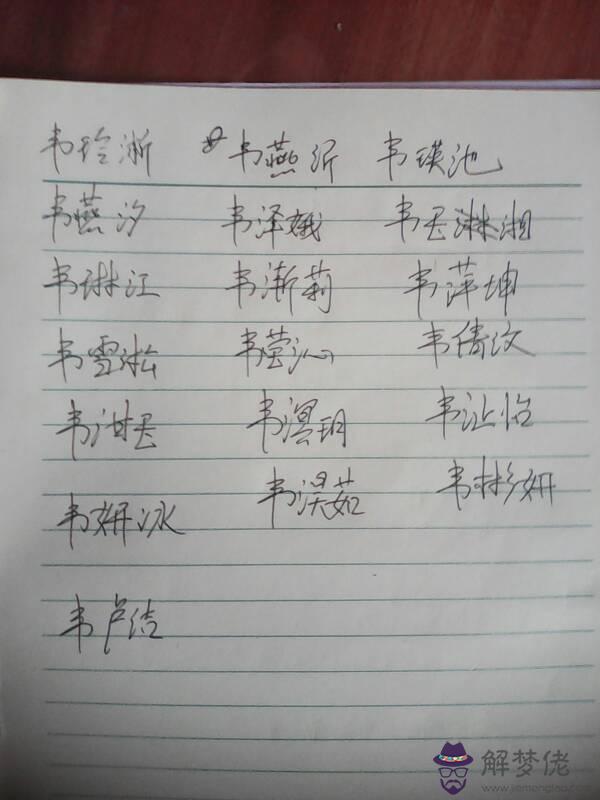 韦玲淅 韦燕沂 韦瑛池
韦燕汐 韦泽娥 韦昱淋湘
韦琳江 韦渐莉 韦萍坤
韦雪淞 韦莹沁 韦倩汶
韦泔昱 韦溟玥 韦沚怡
韦妍冰 韦淏茹 韦彬妍
韦卢洁
解梦佬
www.jiemenglao.com